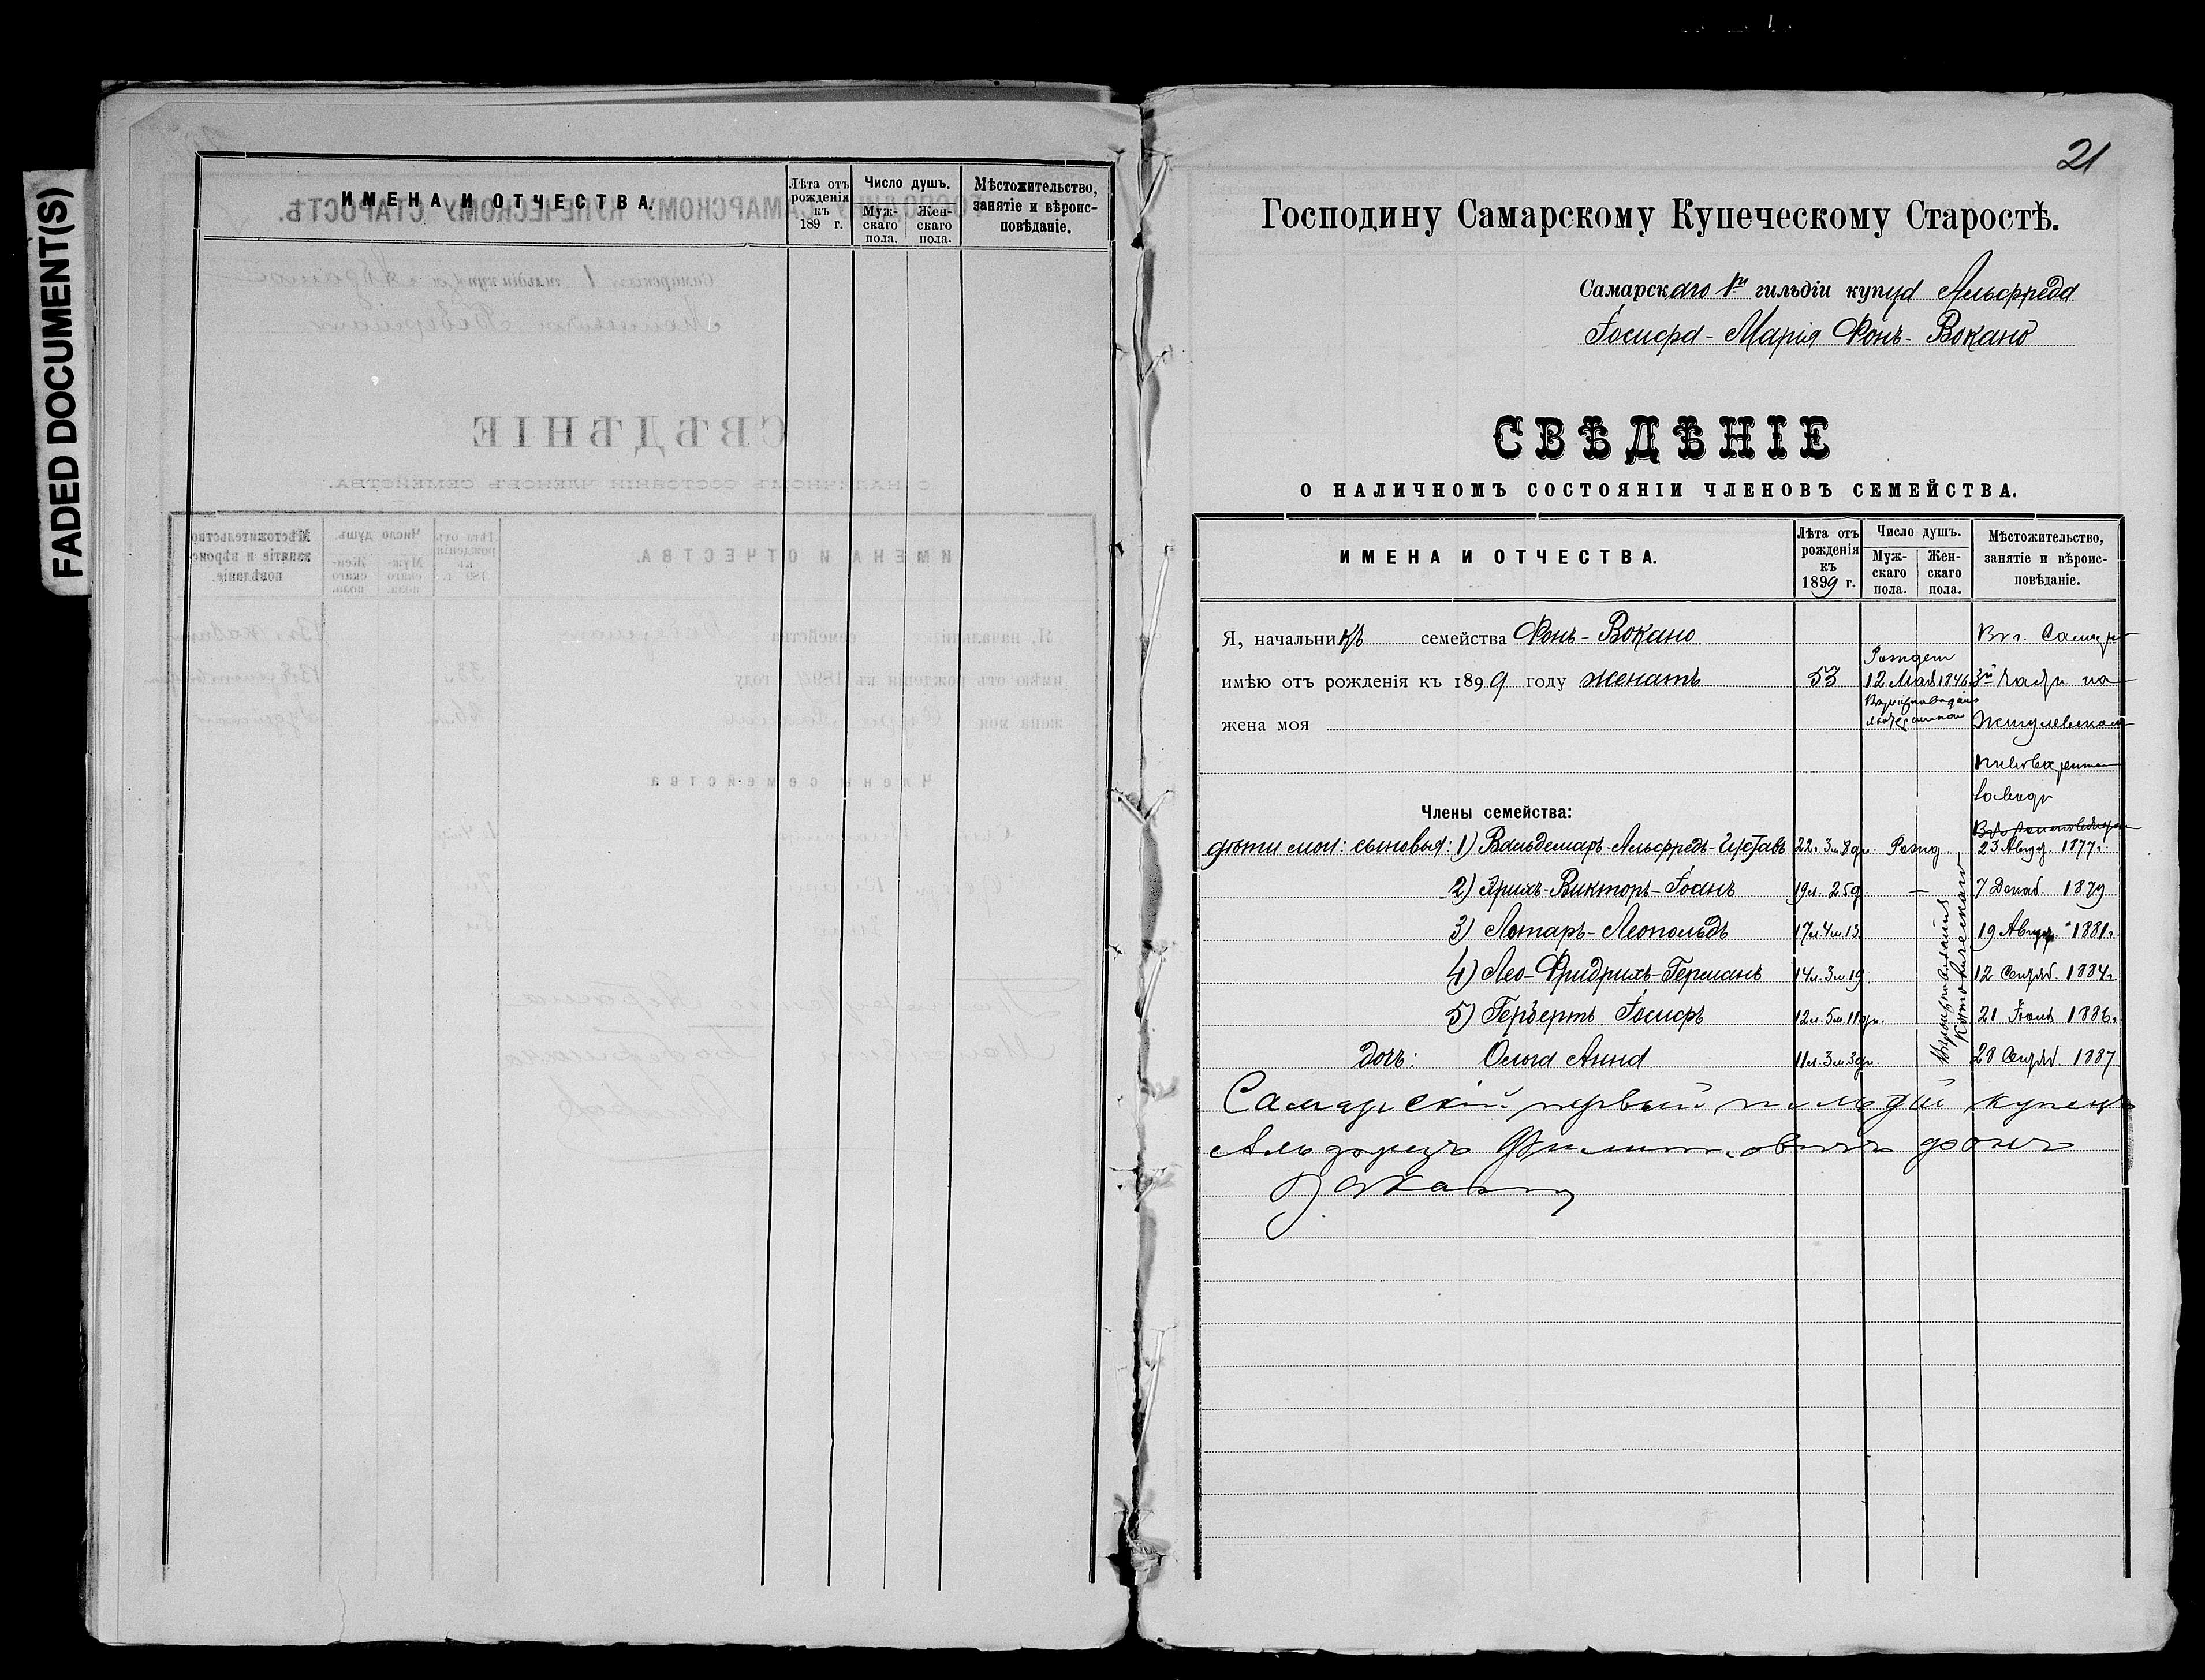 FADED DOCUMENT(S)
ИМЕНА И ОТЧЕСТВА.
Лѣта отъ рожденія къ 189 г.
Число душъ.
Мужскаго пола.
Женскаго пола.
Мѣстожительство, занятіе и вѣроисповѣданіе.
21
Господину Самарскому Купеческому Старостѣ.
Самарскаго 1й гильдіи купца Альфреда
Іосифа-Марія Фонъ-Вокано
СВѢДѢНІЕ
О НАЛИЧНОМЪ СОСТОЯНІИ ЧЛЕНОВЪ СЕМЕЙСТВА.
ИМЕНА И ОТЧЕСТВА.
Лѣта отъ рожденія къ 1899 г.
Число душъ.
Мужскаго пола.
Женскаго пола.
Мѣстожительство, занятіе и вѣроисповѣданіе.
Я, начальникъ семейства Фонъ-Вокано Въ г. Самарѣ
имѣю отъ рожденія къ 1899 году женатъ 53 12 Мая 1846 3й части на
жена моя Жигулевскомъ
пивоваренномъ
заводѣ
Члены семейства:
дѣти мои: сыновья: 1) Вальдемаръ-Альфредъ-Густавъ 22 г. 3 м. 8 дн. Рожд. 23 Авгус. 1877 г.
2) Эрихъ-Викторъ-Іоанъ 19 л. 25 д. — 7 Декаб. 1879
3) Лотаръ-Леопольдъ 17 л. 4 м. 13 19 Август. 1881 г.
4) Лео-Фридрихъ-Германъ 14 л. 3 м. 19 12 Сентяб. 1884 г.
5) Гербертъ Іосифъ 12 л. 5 м. 11 дн. 21 Іюля 1886 г.
дочь: Ольга Анна 11 л. 3 м. 3 дн. 28 Сентяб. 1887
Вѣроисповѣданія
Католическаго
Самарскій первый гильдіи купецъ
Альфредъ Филипповичъ фонъ
Вакано